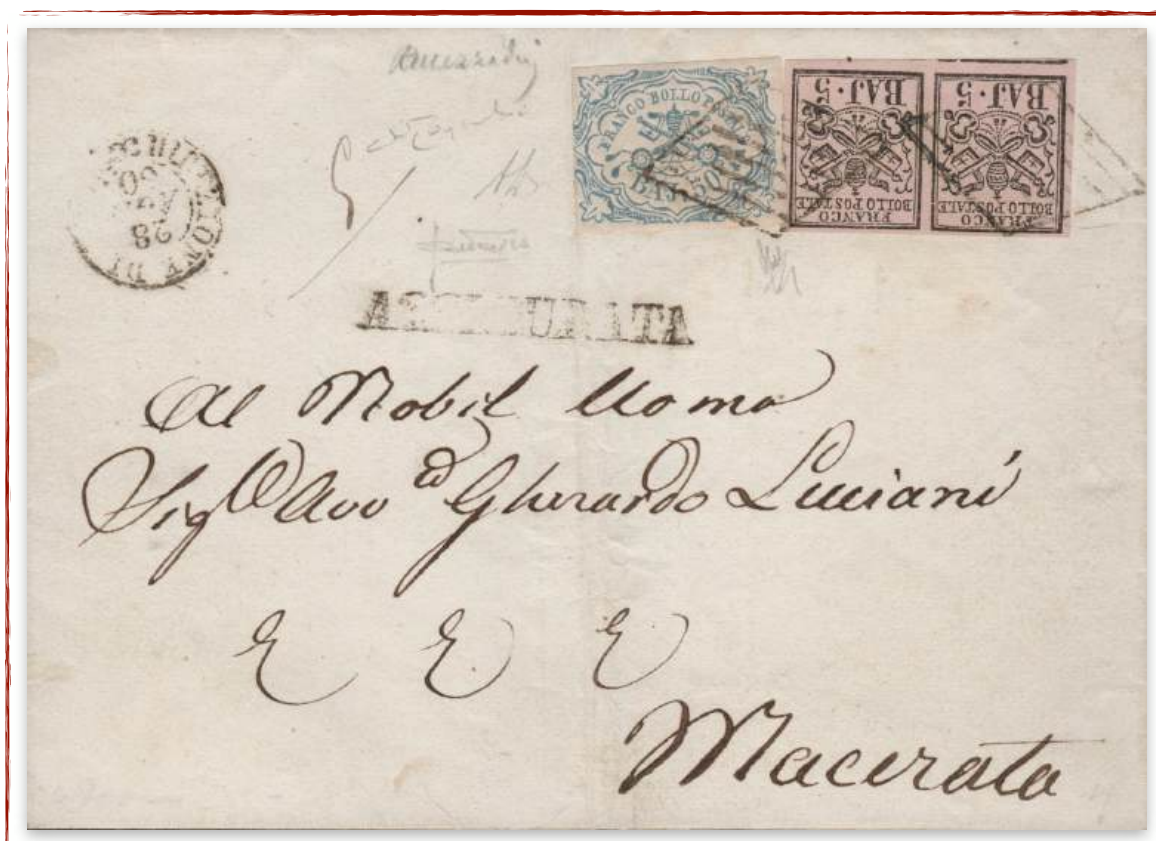 FRANCO BOLLO POSTALE
BAJ 50
BAJ·5
FRANCO
BOLLO POSTALE
BAJ·5
FRANCO
BOLLO POSTALE
28
60
ASSICURATA
Al Nobil Uomo
Sig Avv Gherardo Luciani
Macerata